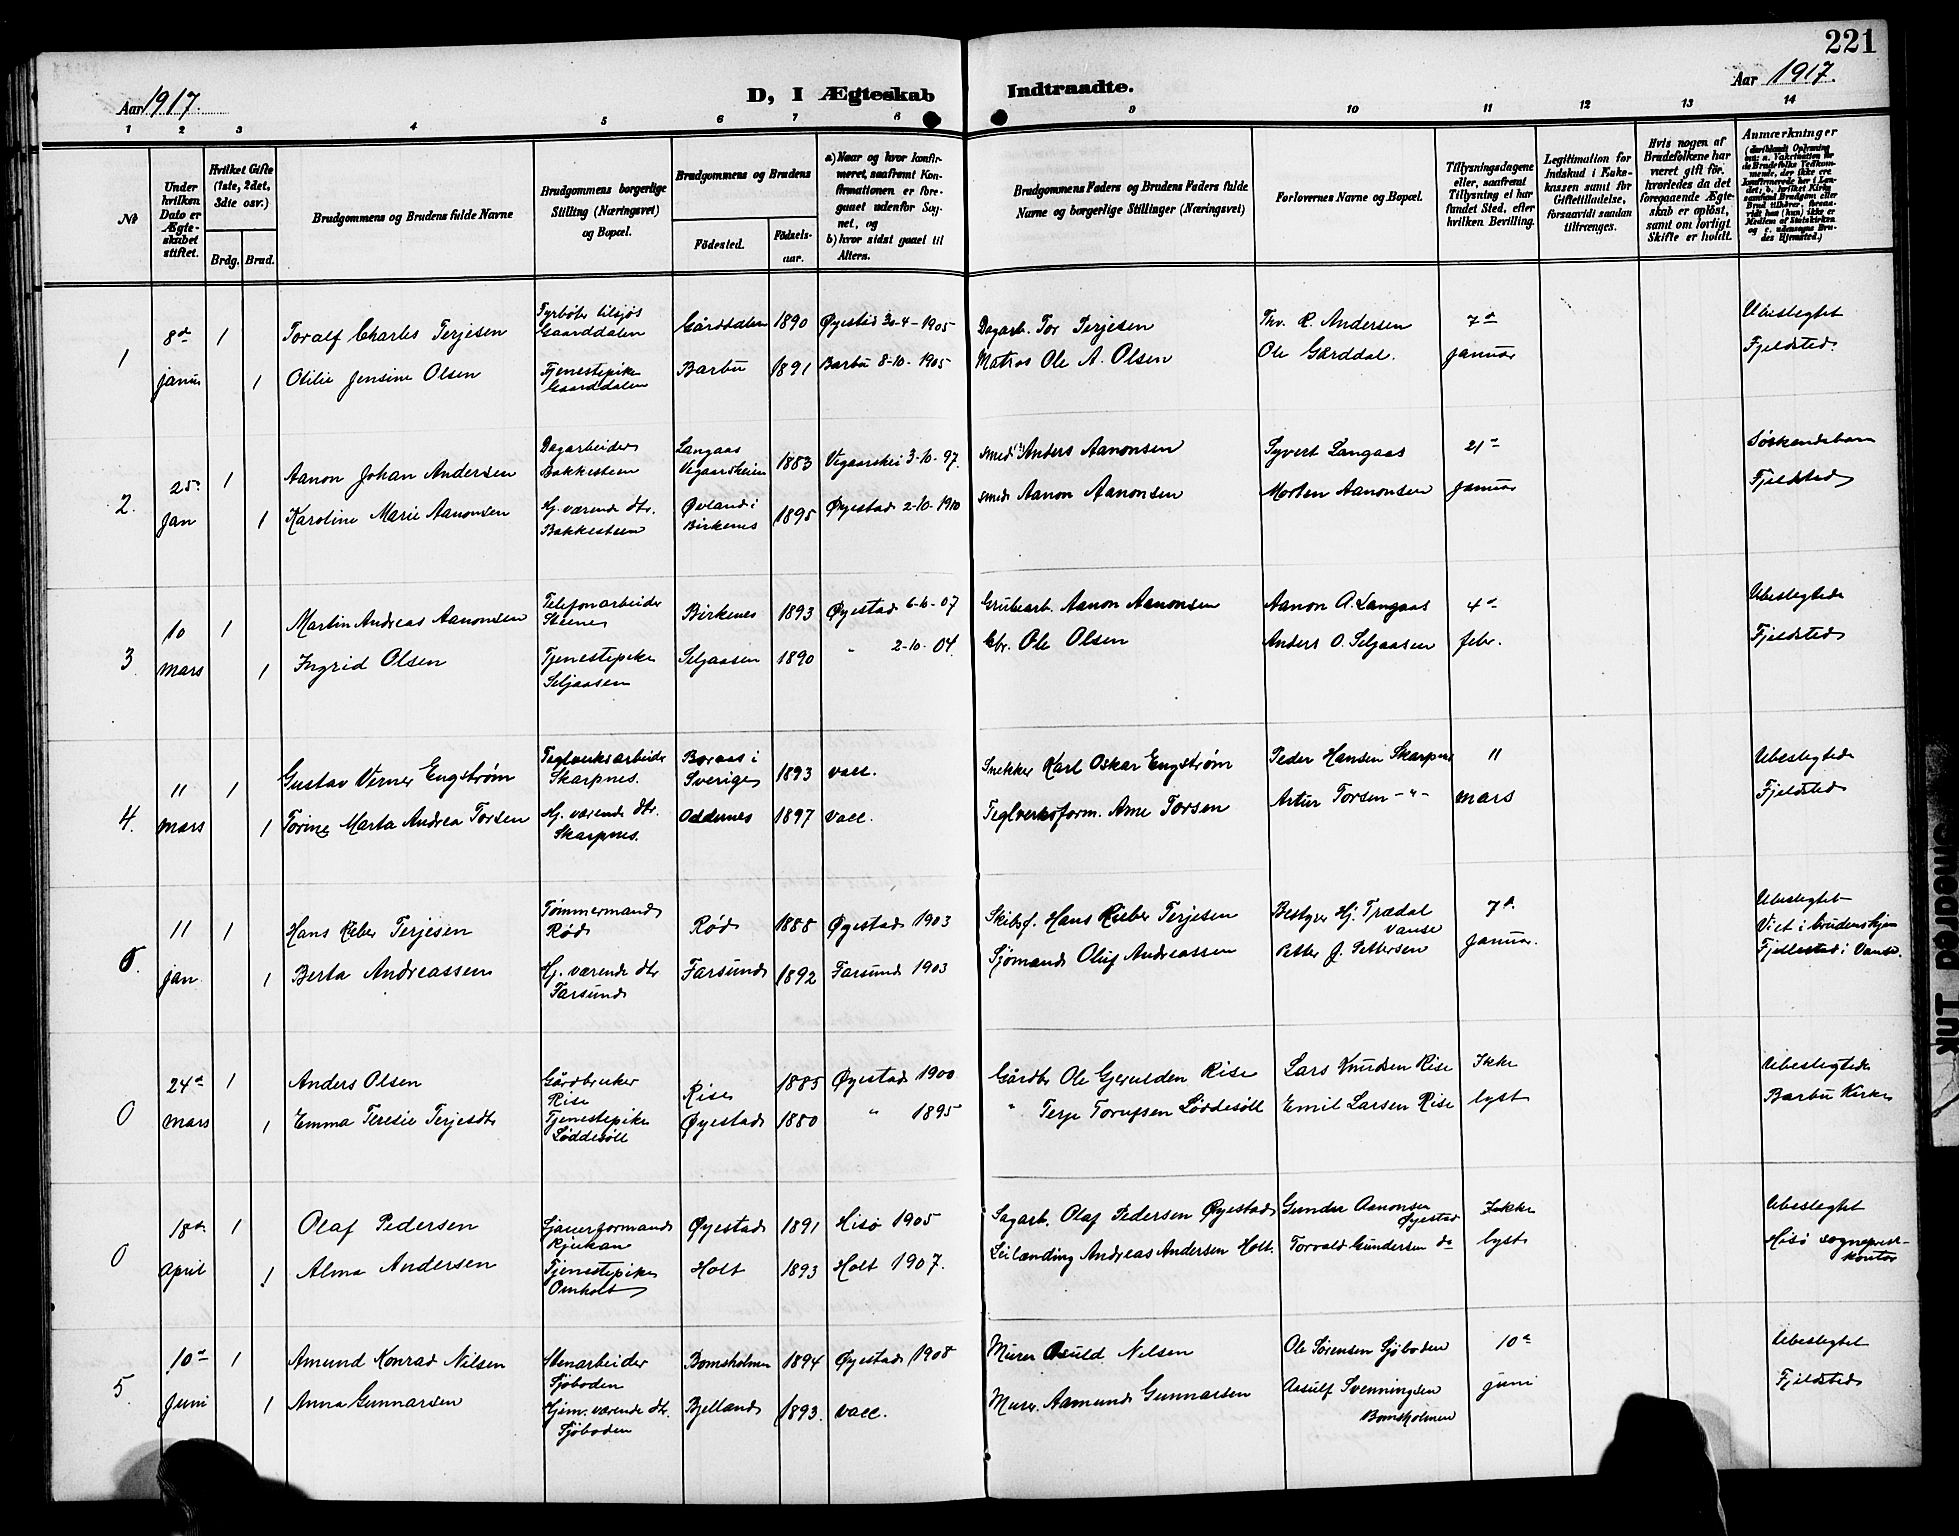 221
Aar 1917.
D, I Ægteskab
Indtraadte.
Aar 1917.
1 2 3 4 5 6 7 8 9 10 11 12 13 14
No
Under hvilken Dato er Ægteskabet stiftet.
Hvilket Gifte (1ste, 2det, 3die osv.)
Brdg. Brud.
Brudgommens og Brudens fulde Navne
Brudgommens borgerlige Stilling (Næringsvei) og Bopæl.
Brudgommens og Brudens
Födested. Födsels-aar.
a) Naar og hvor konfirmeret, saafremt Konfirmationen er foregaaet udenfor Sognet, og
b) hvor sidst gaaet til Alters.
Brudgommens Faders og Brudens Faders fulde Navne og borgerlige Stillinger (Næringsvei)
Forlovernes Navne og Bopæl.
Tillysningsdagene eller, saafremt Tillysning ei har fundet Sted, efter hvilken Bevilling.
Legitimation for Indskud i Enkekassen samt for Giftetilladelse, forsaavidt saadan tiltrænges.
Hvis nogen af Brudefolkene har været gift før, hvorledes da det foregaaende Ægteskab er opløst, samt om lovligt Skifte er holdt.
Anmærkninger
1
8de januar
1
Toralf Charles Terjesen
Fyrböter tilsjøs Gaarddalen
Gårddalen 1890 Øyestad 30-4-1905
Dagarb. Tor Terjesen
Thv. R. Andersen
7de januar
Ubeslegtet
1
Otilie Jensine Olsen
Tjenestepike Gaarddalen
Barbu 1891 Barbu 8-10-1905
Matros Ole A. Olsen
Ole Gårddal.
Fjeldsted.
2.
25 Jan
1
Aanon Johan Andersen
Dagarbeider Bakkesteen
Langaas Vegaarsheien 1883 Vegaarshei 3-10-97.
smed Anders Aanonsen
Syvert Langaas
21de januar
Søskendebarn
1
Karoline Marie Aanonsen
Hj. værende dtr. Bakkesteen
Øvland i Birkenes 1895 Øyestad 2-10-1910
smed Aanon Aanonsen
Morten Aanonsen
Fjeldsted
3
10 mars
1
Martin Andreas Aanonsen
Telefonarbeider Steene
Birkenes 1893 Øyestad 6-10-07
Grubearb. Aanon Aanonsen
Aanon A. Langaas
4de febr.
Ubeslegtede
1
Ingrid Olsen
Tjenestepike Seljaasen
Seljaasen 1890 " 2-10-04.
Gbr. Ole Olsen
Anders O. Seljaasen
Fjeldsted
4.
11 mars
1
Gustav Verner Engstrøm
Teglverksarbeider Skarpnes.
Boraas i Sverige 1893 vacc.
Snekker Karl Oskar Engstrøm
Peder Hansen Skarpnes
11 mars
Ubeslegtede
1
Torine Marta Andrea Torsen
Hj. værende dtr. Skarpnes.
Oddernes 1897 vacc.
Teglverksform. Arne Torsen
Artur Torsen -"-
Fjeldsted
11 jan.
1
Hans Rieber Terjesen
Tømmermand Rød
Rød 1888 Øyestad 1903
Skibsf. Hans Rieber Terjesen
Bestyrer Hj. Trædal Vanse
7de januar.
Ubeslegtet
1
Berta Andreassen
Hj. værende dtr Farsund
Farsund 1892 Farsund 1903
Sjømand Oluf Andreassen
Petter J. Pettersen
Viet i brudens hjem
i Vanse.
0
24de mars
1
Anders Olsen
Gårdbruker Rise
Rise 1885 Øyestad 1900
Gårdbr Ole Gjeruldsen Rise
Lars Knudsen Rise
Ikke lyst
Ubeslegtede
1
Emma Teresie Terjesdtr
Tjenestepike Løddesøll
Øyestad 1880 " 1895
" Terje Torufsen Løddesøll
Emil Larsen Rise
Barbu Kirke
0
18de April
1
Olaf Pedersen
Rjukan
Øyestad 1891 Hisø 1905
Sagarb. Olaf Pedersen Øyestad
Gunder Aanonsen Øyestad
Ikke lyst
Ubeslegtet
1
Alma Andersen
Tjenestepike Omholt
Holt 1893 Holt 1907.
Leilænding Andreas Andersen Holt.
Torvald Gundersen do
Hisø sogneprestkontor
5
10de Juni
1
Amund Konrad Nilsen
Stenarbeider Sjøboden
Bomsholmen 1894 Øyestad 1908
Murer Osuld Nilsen
Ole Sørensen Sjøboden
10de juni
Ubeslegtet
1
Anna Gunnarsen
Hjem. værende dtr. Sjøboden
Bjelland 1893. vacc.
Murer. Aamund Gunnarsen
Aasulf Svenningsen Bomsholmen
Fjeldsted